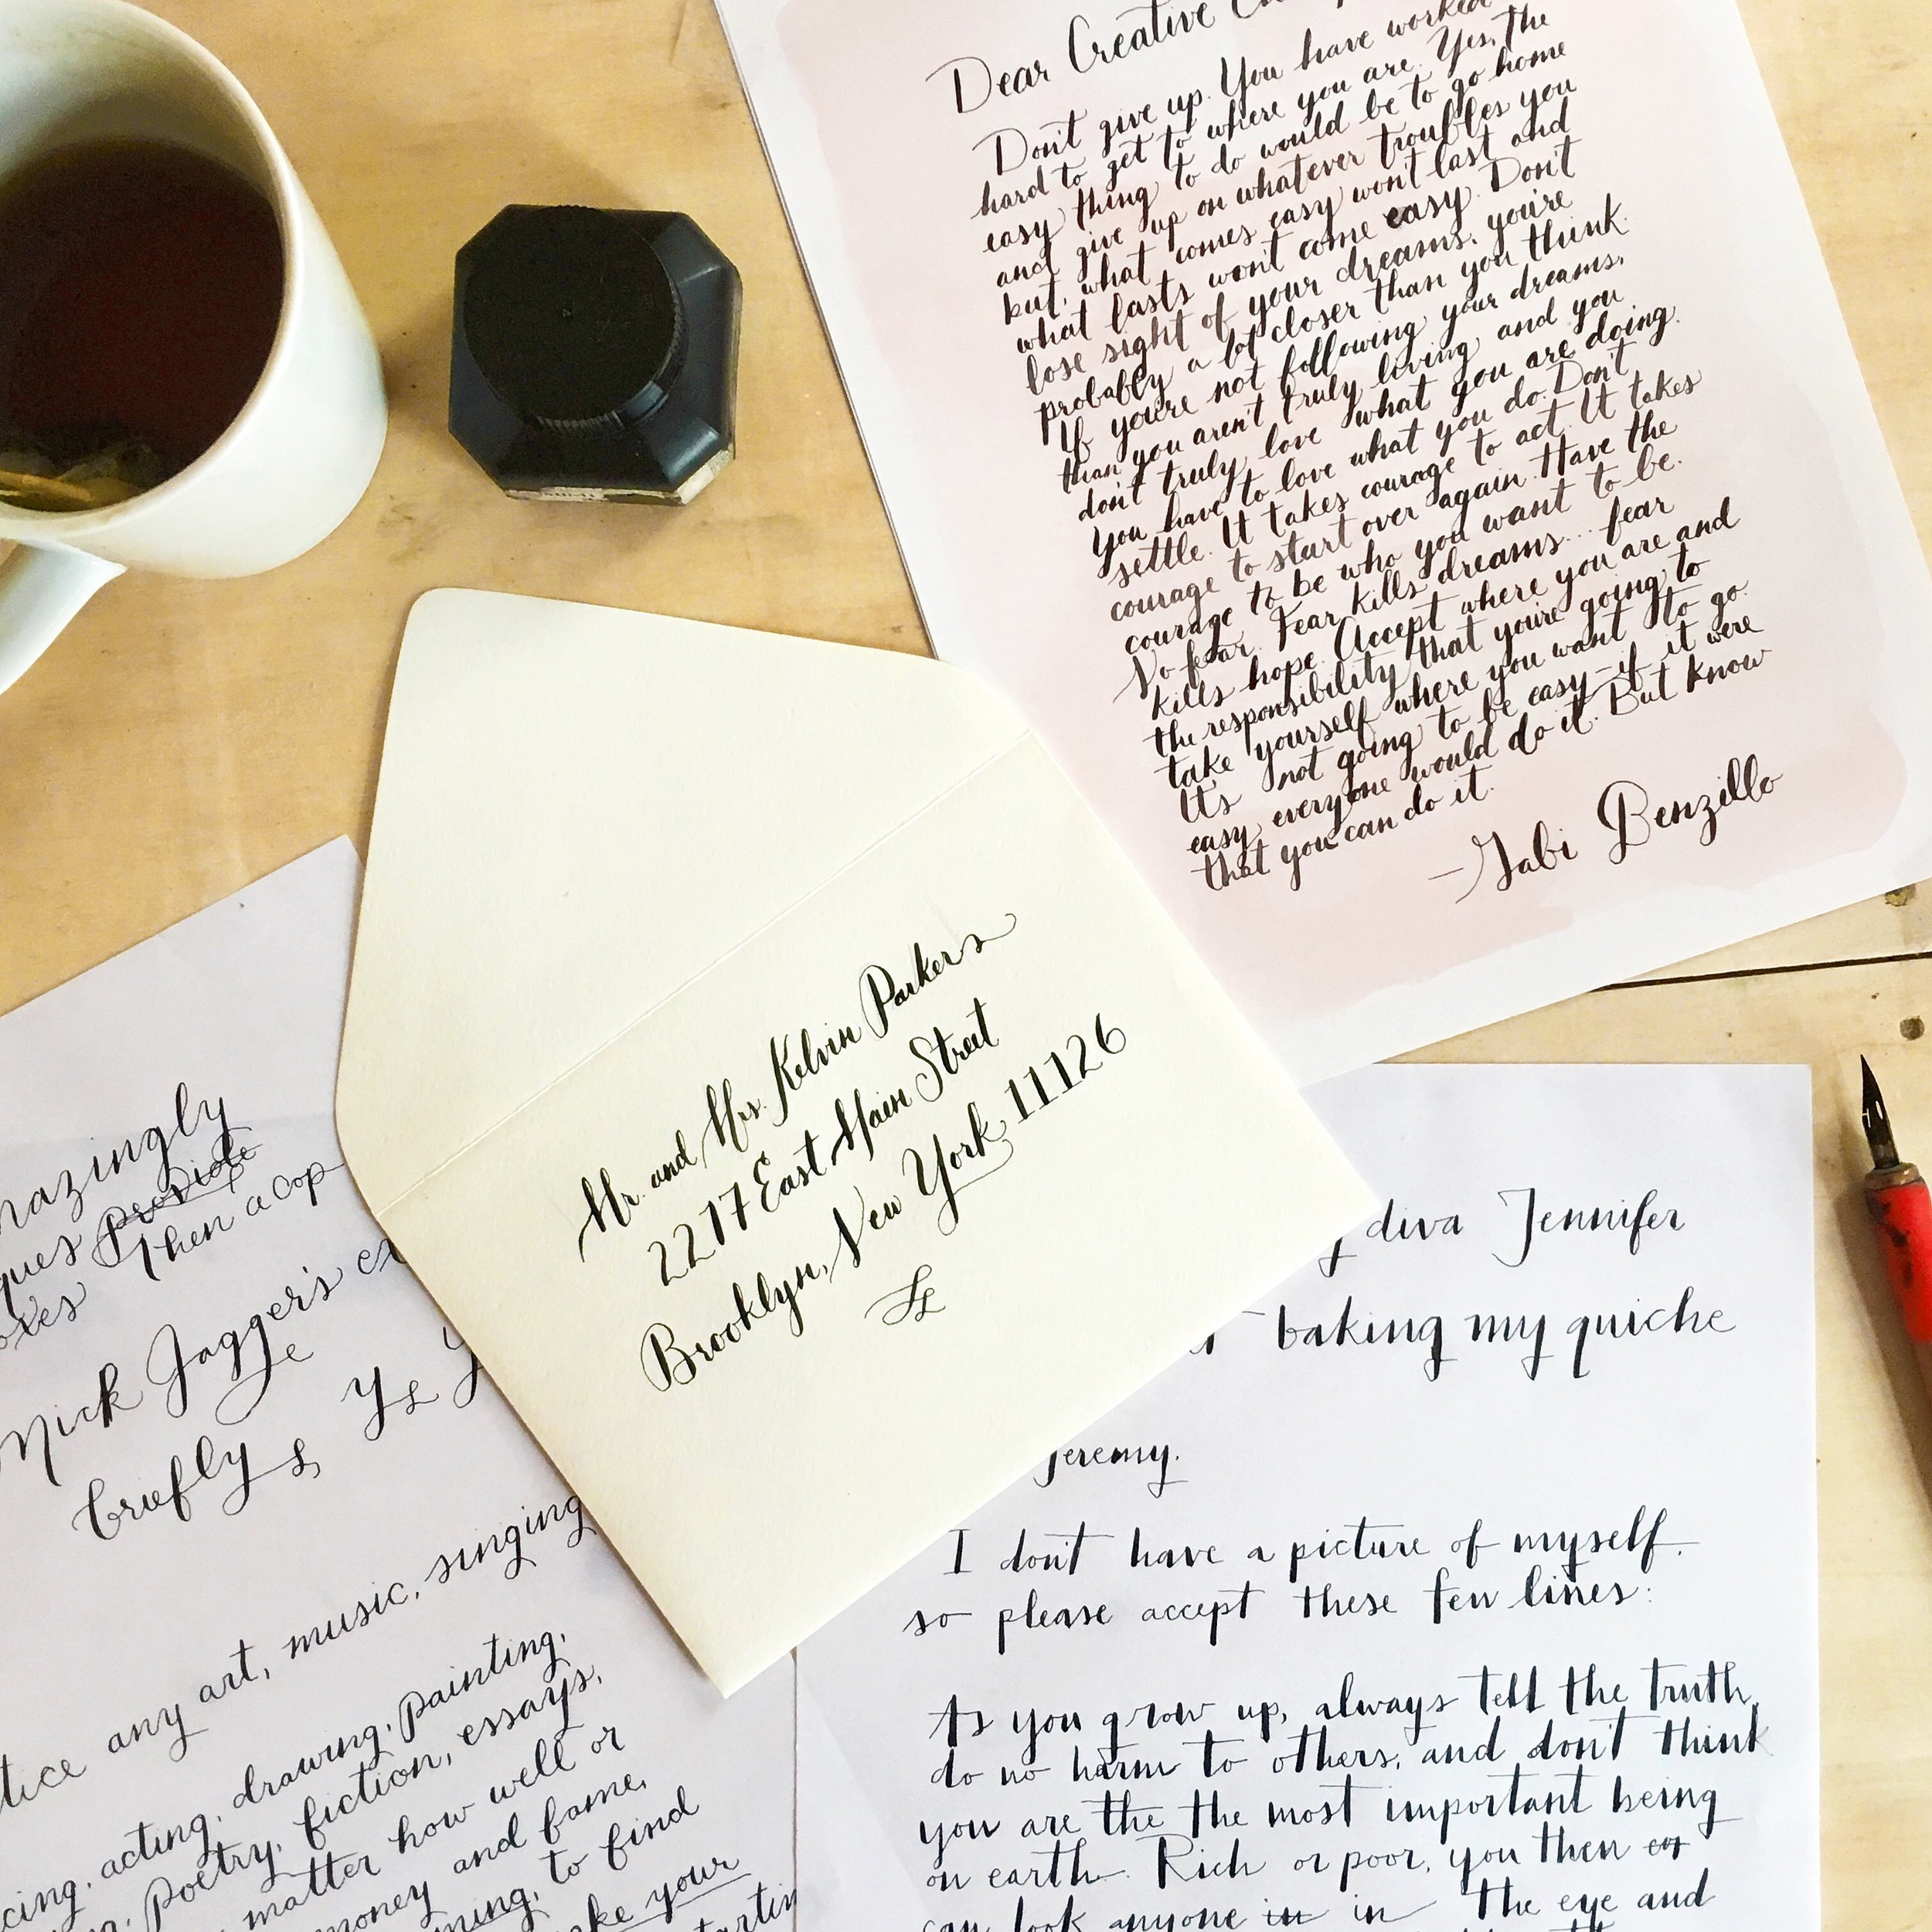 Dear Creative
Don't give up. You have worked
hard to get to where you are. Yes, the
easy thing to do would be to go home
and give up on whatever troubles you
but, what comes easy won't last and
what lasts won't come easy. Don't
lose sight of your dreams, you're
probably a lot closer than you think.
If you're not following your dreams,
than you aren't truly living and you
don't truly love what you are doing.
You have to love what you do. Don't
settle. It takes courage to act. It takes
courage to start over again. Have the
courage to be who you want to be.
No fear. Fear kills dreams... fear
kills hope. Accept where you are and
the responsibility that you're going to
take yourself where you want to go.
It's not going to be easy - if it were
easy, everyone would do it. But know
that you can do it.
- Gabi Benzillo
Mr. and Mrs. Kelvin Parkers
2217 East Main Street
Brooklyn, New York, 11126
mazingly
ques Provide
oxes Then a cop
Mick Jagger's
briefly
tice any art, music, singing
cing, acting, drawing, painting,
poetry, fiction, essays,
matter how well or
money and fame,
ming, to find
ake your
startin
diva Jennifer
baking my quiche
Jeremy.
I don't have a picture of myself,
so please accept these few lines:
As you grow up, always tell the truth,
do no harm to others, and don't think
you are the the most important being
on earth. Rich or poor, you then
can look anyone in in the eye and